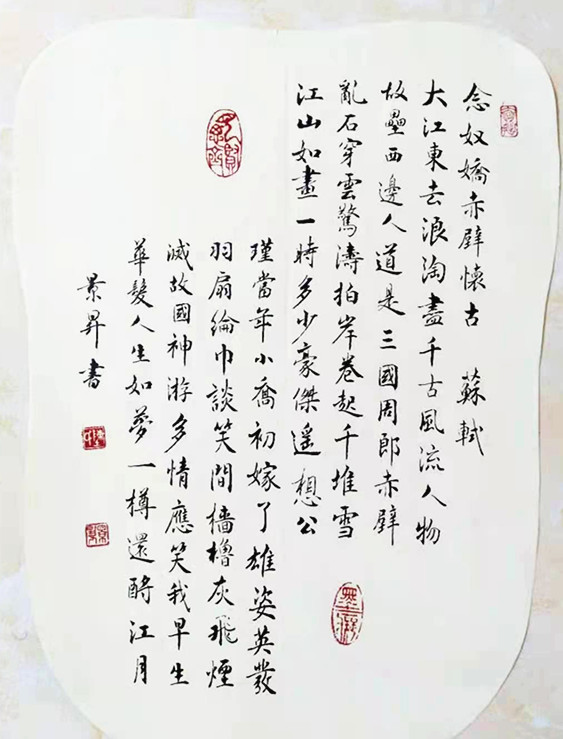 念奴嬌赤壁懷古 蘇軾
大江東去浪淘盡千古風流人物
故壘西邊人道是三國周郎赤壁
亂石穿雲驚濤拍岸卷起千堆雪
江山如畫一時多少豪傑遥想公
瑾當年小喬初嫁了雄姿英發
羽扇綸巾談笑間檣櫓灰飛煙
滅故國神游多情應笑我早生
華髮人生如夢一樽還酹江月
景昇書